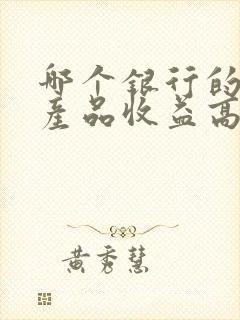 哪个银行的
产品收益高
黄秀慧